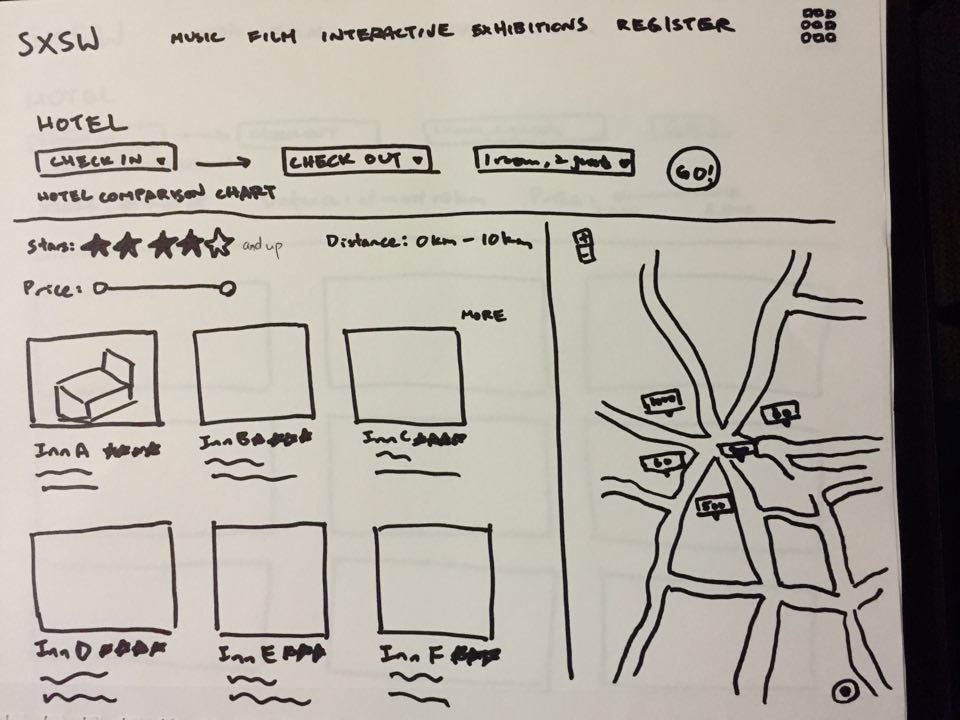 SXSW MUSIC FILM INTERACTIVE EXHIBITIONS REGISTER
HOTEL
CHECK IN CHECK OUT 1 room, 2 guest GO!
HOTEL COMPARISON CHART
Stars: and up Distance: 0km - 10km
Price:
MORE
Inn A Inn B Inn C
Inn D Inn E Inn F
+
-
60
500